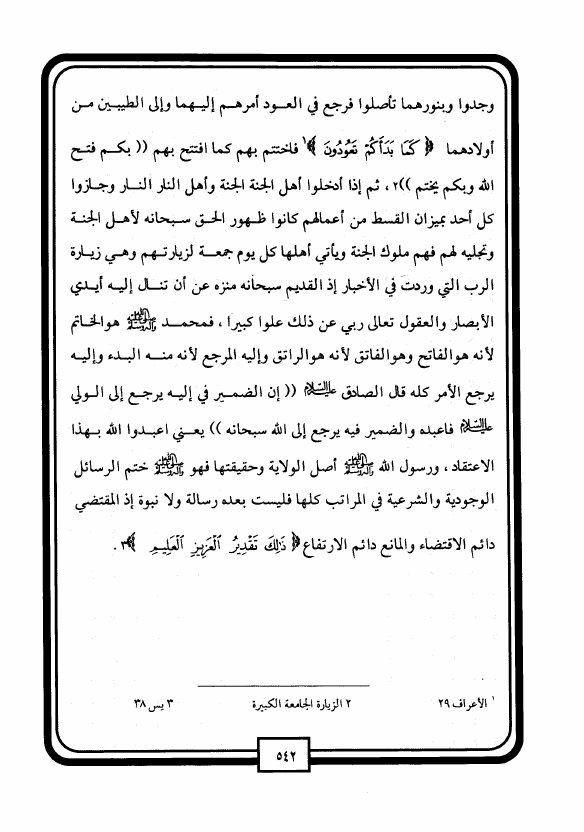 وجدوا وبنورهما تأصلوا فرجع في العود أمرهم إليهما وإلى الطيبين من
أولادهما ﴿ كَمَا بَدَأَكُمْ تَعُودُونَ ﴾١ فاختتم بهم كما افتتح بهم (( بكم فتح
الله وبكم يختم ))٢ ، ثم إذا أدخلوا أهل الجنة الجنة وأهل النار النار وجازوا
كل أحد بميزان القسط من أعمالهم كانوا ظهور الحق سبحانه لأهل الجنة
وتجليه لهم فهم ملوك الجنة ويأتي أهلها كل يوم جمعة لزيارتهم وهي زيارة
الرب التي وردت في الأخبار إذ القديم سبحانه منزه عن أن تنال إليه أيدي
الأبصار والعقول تعالى ربي عن ذلك علوا كبيرا ، فمحمد ﷺ هوالخاتم
لأنه هوالفاتح وهوالفاتق لأنه هوالراتق وإليه المرجع لأنه منه البدء وإليه
يرجع الأمر كله قال الصادق عليه السلام (( إن الضمير في إليه يرجع إلى الولي
عليه السلام فاعبده والضمير فيه يرجع إلى الله سبحانه )) يعني اعبدوا الله بهذا
الاعتقاد ، ورسول الله ﷺ أصل الولاية وحقيقتها فهو ﷺ ختم الرسائل
الوجودية والشرعية في المراتب كلها فليست بعده رسالة ولا نبوة إذ المقتضي
دائم الاقتضاء والمانع دائم الارتفاع ﴿ ذَٰلِكَ تَقْدِيرُ ٱلْعَزِيزِ ٱلْعَلِيمِ ﴾٣ .
١ الأعراف ٢٩ ٢ الزيارة الجامعة الكبيرة ٣ يس ٣٨
٥٤٢